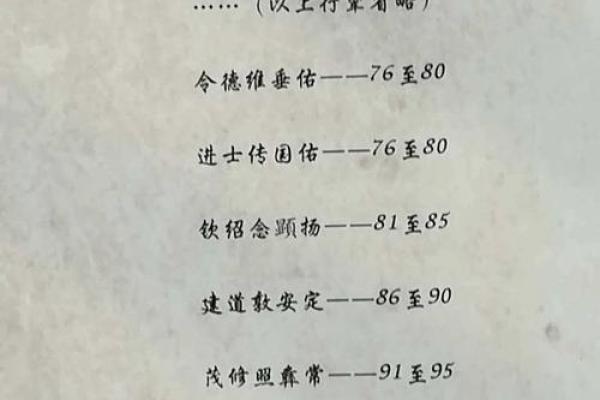 ……（以上行辈省略）
令德维垂佑——76至80
进士传国佑——76至80
钦绍念顕扬——81至85
建道敦安定——86至90
茂修照彝常——91至95